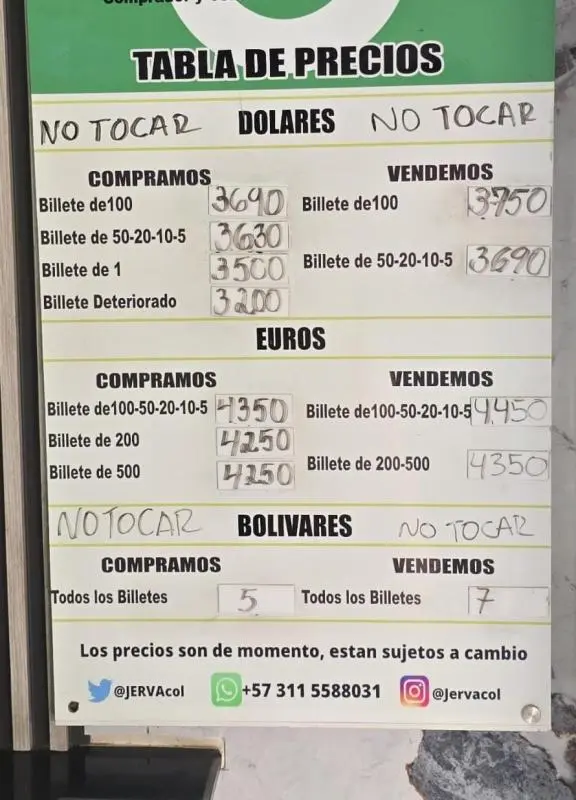 TABLA DE PRECIOS
NO TOCAR DOLARES NO TOCAR
COMPRAMOS VENDEMOS
Billete de100 3690 Billete de100 3750
Billete de 50-20-10-5 3630
Billete de 50-20-10-5 3690
Billete de 1 3500
Billete Deteriorado 3200
EUROS
COMPRAMOS VENDEMOS
Billete de100-50-20-10-5 4350 Billete de100-50-20-10-5 4450
Billete de 200 4250
Billete de 200-500 4350
Billete de 500 4250
NO TOCAR BOLIVARES NO TOCAR
COMPRAMOS VENDEMOS
Todos los Billetes 5 Todos los Billetes 7
Los precios son de momento, estan sujetos a cambio
@JERVAcol +57 311 5588031 @Jervacol